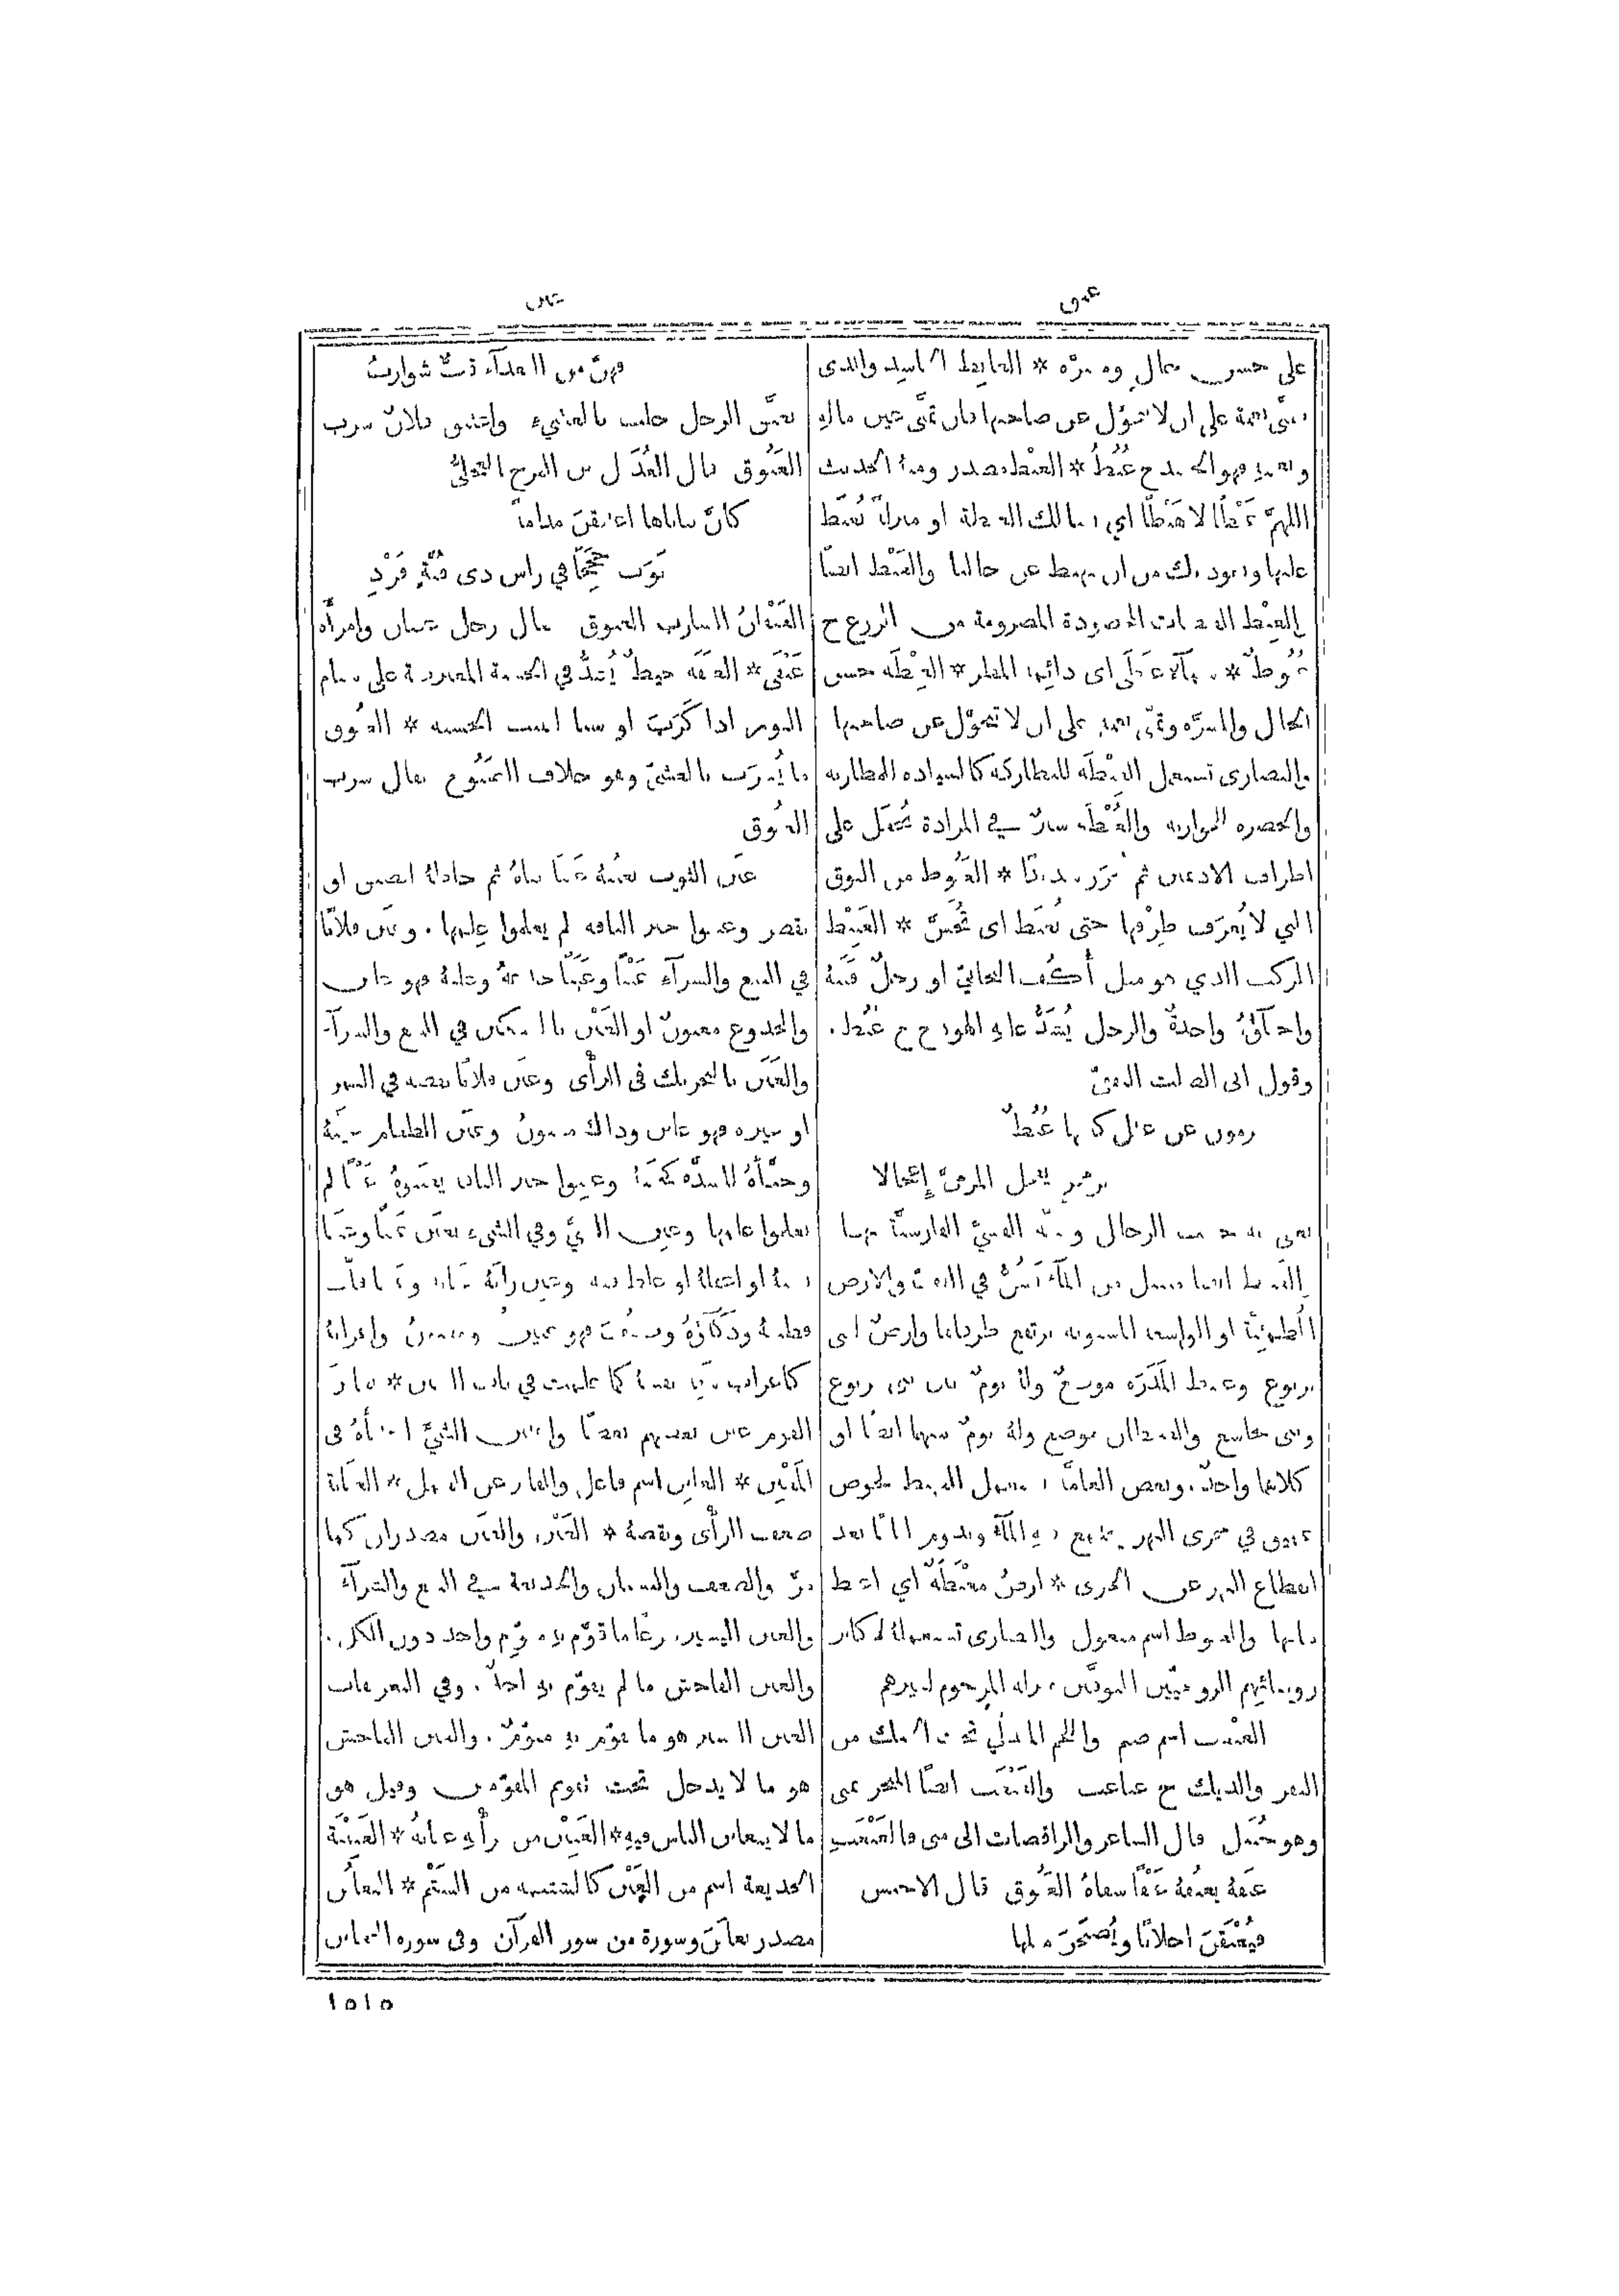 غبق
غبن
على حسن حال ومسرّة * الغابط الحاسد والذي
يتمنّى نعمة على ان لا تتحوّل عن صاحبها فان تمنّى عين ماله
فهو الحسد ج غُبُطٌ * الغبط مصدر ومنهُ الحديث
اللهمّ غَبْطًا لا هَبْطًا اي نسالك الغبطة او منزلةً نُغبَط
عليها ونعوذ بك من ان نهبط عن حالنا والغَبْط ايضًا
والغِبْط القبضات المحصودة المصرومة من الزرع ج
غُبُوطٌ * سمآء غَبَطَى اي دائمة المطر * الغِبْطَة حسن
الحال والمسرّة وتمنّي نعمة على ان لا تتحوّل عن صاحبها
والنصارى تستعمل الغِبْطَة للبطاركة كالسيادة للمطارنة
والحضرة للخوارنة والغُبْطَة سيرٌ في المزادة يُجعَل على
اطراف الاديمين ثم يُخرَز شديدًا * الغَبُوط من النوق
التي لا يُعرَف طِرْقها حتى تُغبَط اي تُجَسّ * الغَبِيْط
المركب الذي هو مثل أُكُف البخاتيّ او رحلٌ قَتَبُهُ
واحنآؤُهُ واحدةٌ والرحل يُشَدُّ عليهِ الهودج ج غُبُط.
وقول ابي الصلت الثقفيّ
يرمون عن عتل كانها غُبُطٌ
بزمخرٍ يعجل المرميَّ إِعجالا
يعني به خشب الرحال وشبّه القسيّ الفارسيّة بها
الغبيط ايضًا مسيل من المآء يَشُقُّ في القفّ والارض
المطمئنّة او الواسعة المستوية يرتفع طرفاها وارضٌ لبني
يربوع وغبيط المَدَرَة موضعٌ ولهُ يومٌ بين بني يربوع
وبني مجاشع والغبيطان موضع ولهُ يومٌ ايضًا او
كلاهما واحدٌ. وبعض العامّة يستعمل الغبيط لحوض
عميق في مجرى النهر يجتمع فيه المآء ويدوم بعد
انقطاع النهر عن الجري * ارضٌ مغْبَطَةٌ اي
والمغبوط اسم مفعول والنصارى تستعملهُ لاكابر
روسائهم الروحيّين
الغَبْغَب اسم صنم واللحم المتدلّي تحت الحنك من
البقر والديك ج غباغب والغَبْغَب ايضًا المنحر بمنى
وهو جُبَيل قال الشاعر والراقصات الى منى فالغَبْغَبِ
غبقهُ يغبقهُ غَبْقًا سقاهُ الغَبُوق قال الاخنس
فيُغْبَقْنَ احلابًا ويُصبَحْنَ مثلها
فهنّ من التعدآء قبٌّ شوازبُ
تغبَّق الرجل حلب بالعشيّ. واغتبق فلانٌ شرب
الغَبُوق قال العُدَيل بن الفرخ العجليّ
كأنّ ثناياها اغتبقنَ مدامةً
ثوت حِجَجًا في راس ذي قُنَّةٍ فَرْدِ
الغَبْقَانُ الشارب الغبوق يقال رجل غبقان وامرأة
غَبْقَى * الغَبَقَة خيطٌ يُشدُّ في الخشبة المعترضة على سنام
الثور اذا كَرَبَ او سنا لتثبت الخشبة * الغَبُوق
ما يُشرَب بالعشيّ وهو خلاف الصَّبُوح يقال شرب
الغبُوق
غبن الثوب يغبنهُ غبنًا ثناهُ ثم خاطهُ لضيق او
يقصر وغبنوا خبر الناقة لم يعلموا علمها. وغبن فلانًا
في البيع والشرآء غَبْنًا وغَبَنًا خدعهُ وغلبهُ فهو غابن
والمخدوع مغبونٌ او الغَبْن بالتسكين في البيع والشرآء
والغَبَن بالتحريك في الرأي وغبن فلانًا نقصهُ في الثمن
او غيره فهو غابن وذاك مغبونٌ وغبن الطعام خبنهُ
وخبّأهُ للشدّة وغبنوا خبر الناقة يغبنوهُ غَبْنًا لم
يعلموا علمها وغبِن الشيَّ وفي الشيء يغبَن غَبَنًا وغَبْنًا
نسيهُ او اغفلهُ او غلط فيه وغبن رأيَهُ
فطنتهُ وذكآؤُهُ فهو غبينٌ ومغبونٌ واعرابهُ
كاعراب سفه نفسهُ كما علمت في باب السين * غابن
القوم غبن بعضهم بعضًا واغتبن الشيَّ اختبأهُ في
المَغْبِن * الغابن اسم فاعل والفاتر عن العمل * الغبانة
ضعف الرأي ونقصهُ * الغَبْن والغَبَن مصدران كما
مرّ والضعف والنسيان والخديعة في البيع والشرآء
والغبن اليسير ربّما قوّم بهِ مقوّم واحد دون الكلّ.
والغبن الفاحش ما لم يقوّم به احدٌ. وفي التعريفات
الغبن اليسير هو ما يقوّم بهِ مقوّمٌ. والغبن الفاحش
هو ما لا يدخل تحت تقويم المقوّمين وقيل هو
ما لا يتغابن الناس فيهِ * الغَبِيْنَة
الخديعة اسم من الغَبْن كالشتيمة من الشَتْم * التغابُن
مصدر تغابَنَ وسورة من سور القرآن وفي سورة التغابن
١٥١٥